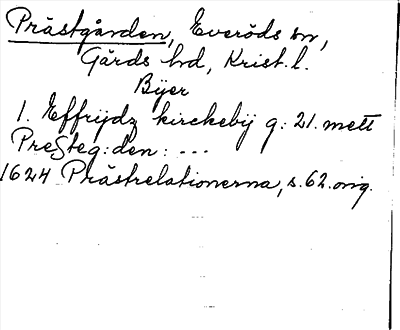 Prästgården, Everöds sn,
Gärds hd, Krist. l.
Bijer
1. Effrijdz kirckebij g: 21. mett
PreSteg:den: ---
1624 Prästrelationerna, s. 62. orig.